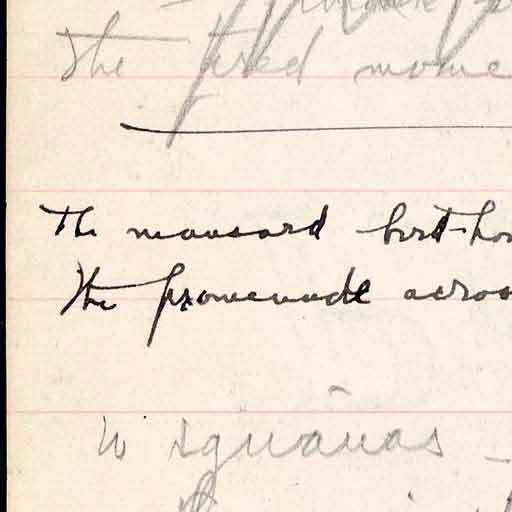 The tired mome
The mansard bird-hou
The promenade acros
W iguanas -